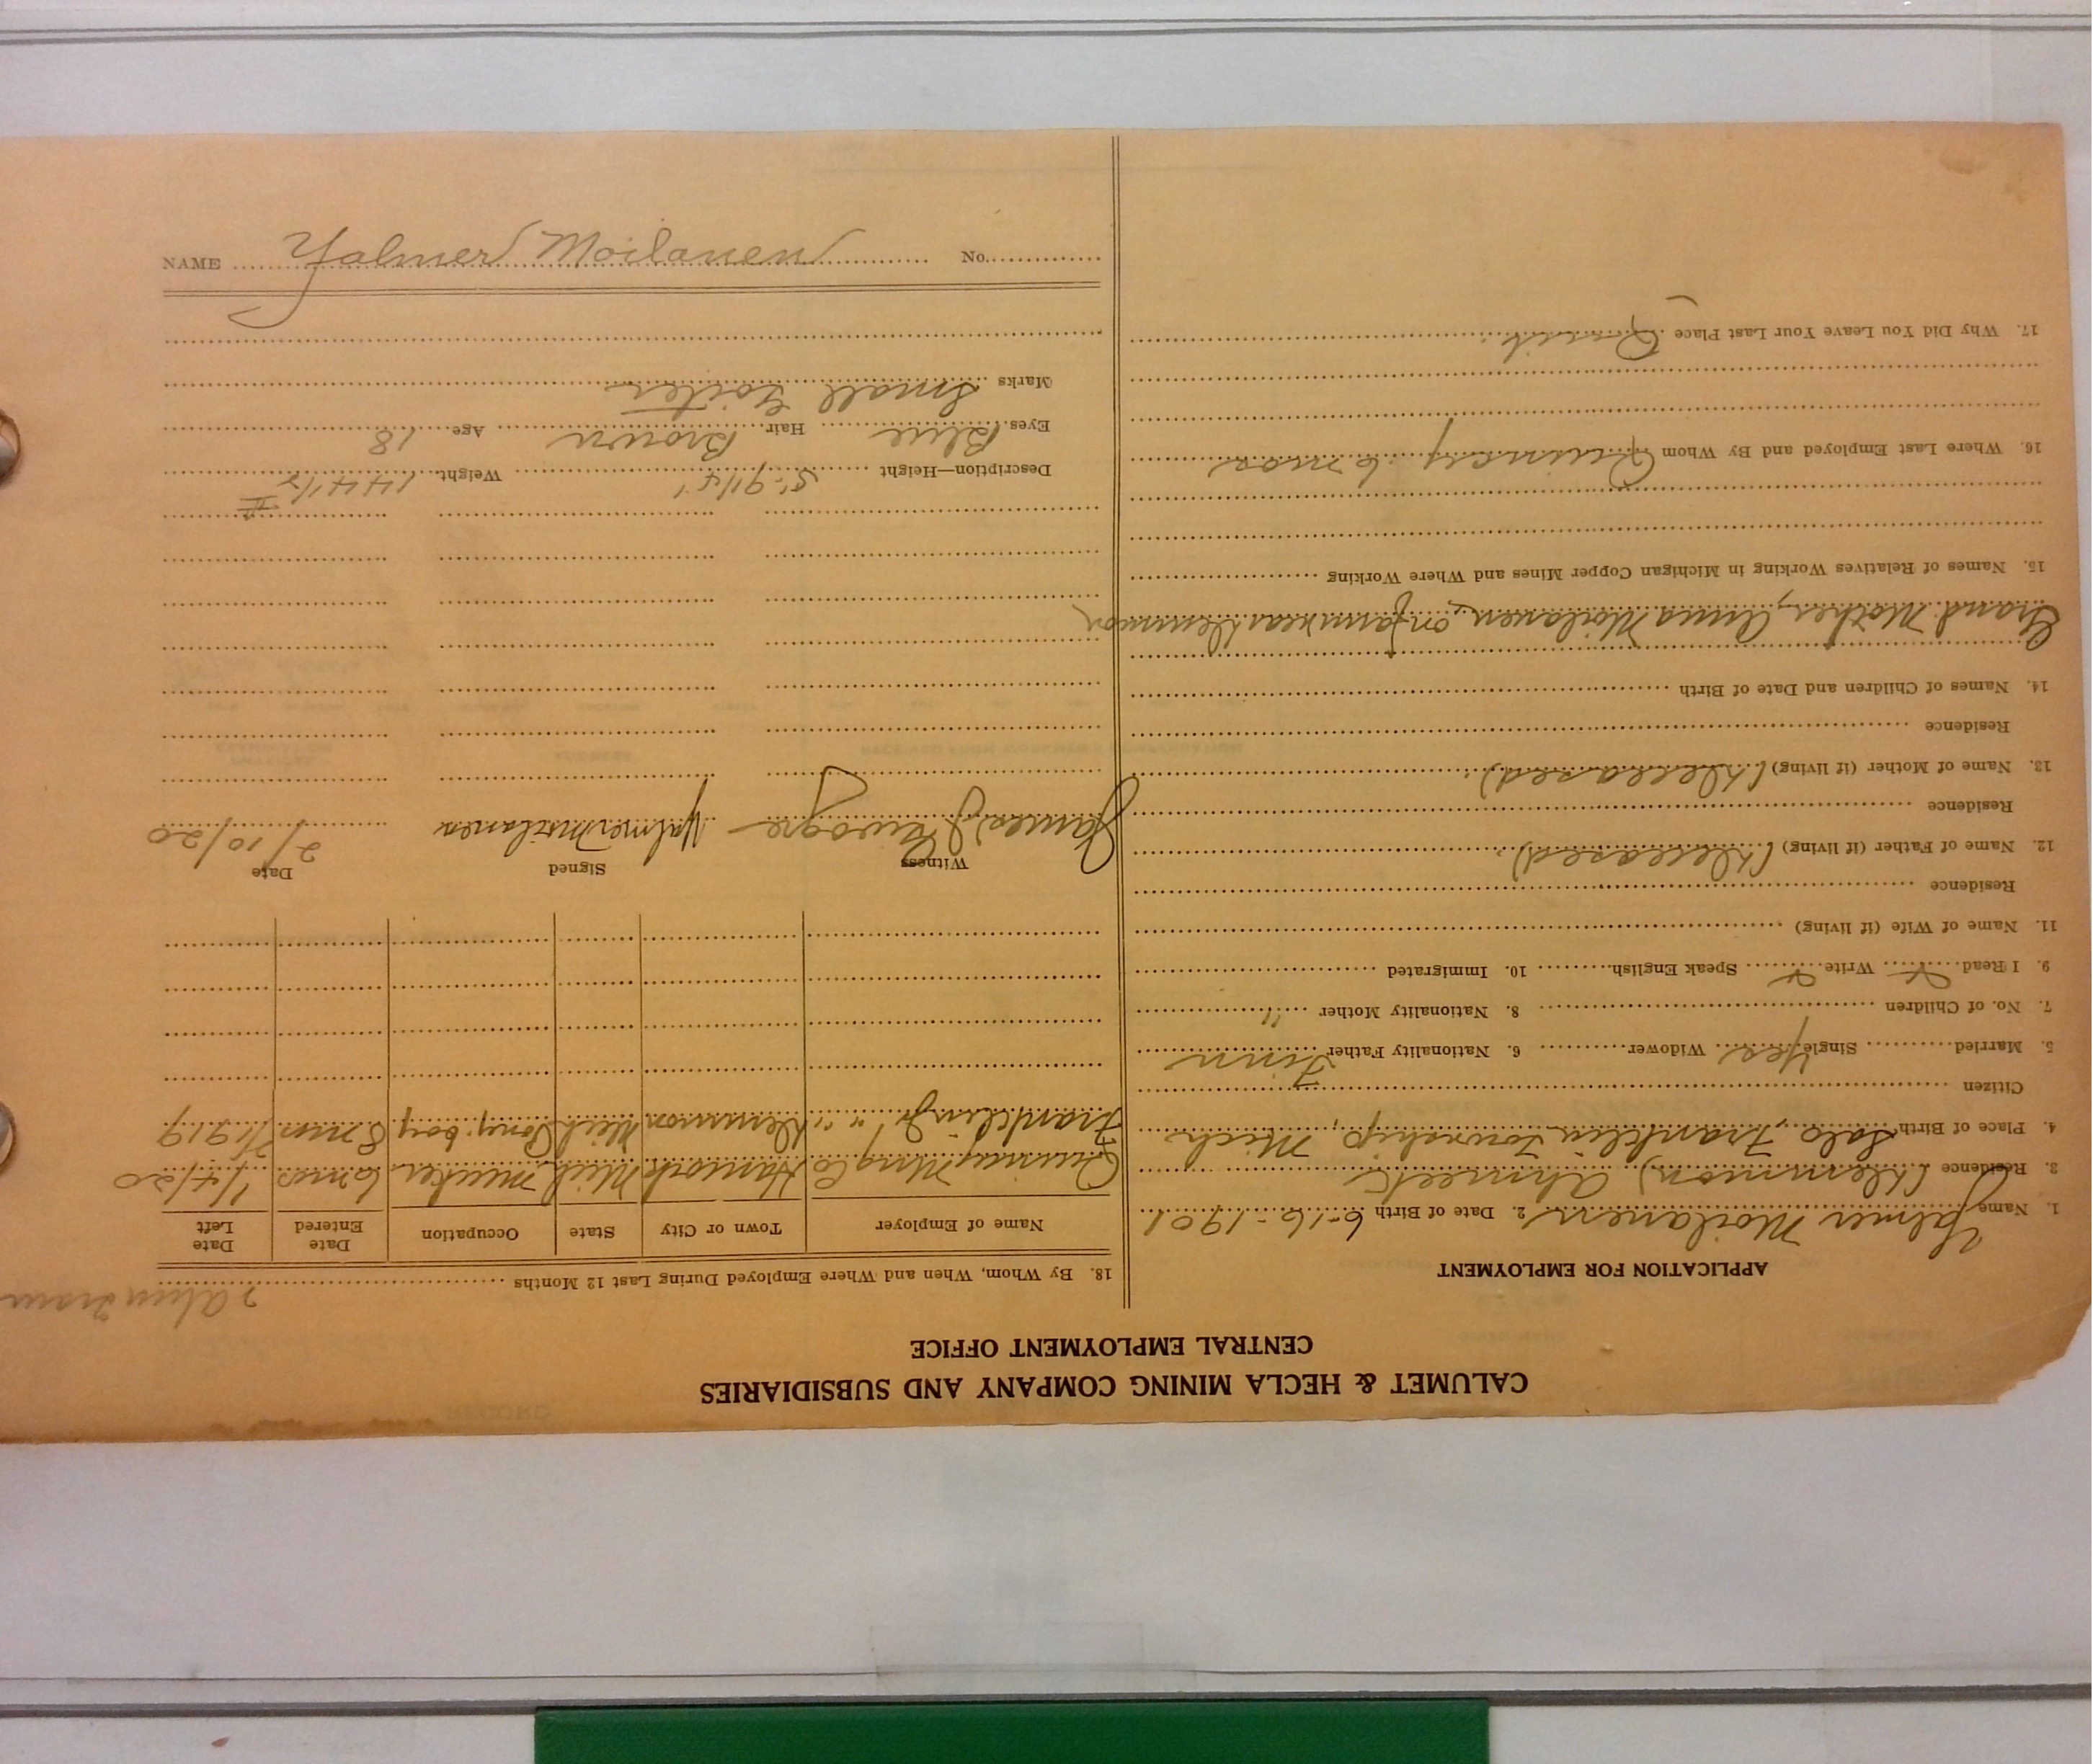 CALUMET & HECLA MINING COMPANY AND SUBSIDIARIES
CENTRAL EMPLOYMENT OFFICE
APPLICATION FOR EMPLOYMENT
1. Name Yalmer Moilanen 2. Date of Birth 6-16-1901
3. Residence (Demmon) Ahmeek
4. Place of Birth Salo, Franklin Township, Mich
Citizen
5. Married Single Yes Widower 6. Nationality Father Finn
7. No. of Children 8. Nationality Mother "
9. I Read Write Speak English 10. Immigrated
11. Name of Wife (if living)
Residence
12. Name of Father (if living) (Deceased)
Residence
13. Name of Mother (if living) (Deceased)
Residence
14. Names of Children and Date of Birth
Grand Mother, Anna Moilanen, on farm near Demmon
15. Names of Relatives Working in Michigan Copper Mines and Where Working
16. Where Last Employed and By Whom Quincy 6 mos
17. Why Did You Leave Your Last Place Quit
18. By Whom, When and Where Employed During Last 12 Months
Name of Employer Town or City State Occupation Date Entered Date Left
Quincy Mng Co Hancock Mich mucker 6 mos 1/4/20
Franklin Jr " " Demmon Mich Pony boy 8 mos 7/1919
Witness Signed Date
James Yalmer Moilanen 2/10/20
Description—Height 5'-9 1/4" Weight 144 1/2
Eyes Blue Hair Brown Age 18
Marks Small Goiter
NAME Yalmer Moilanen No.